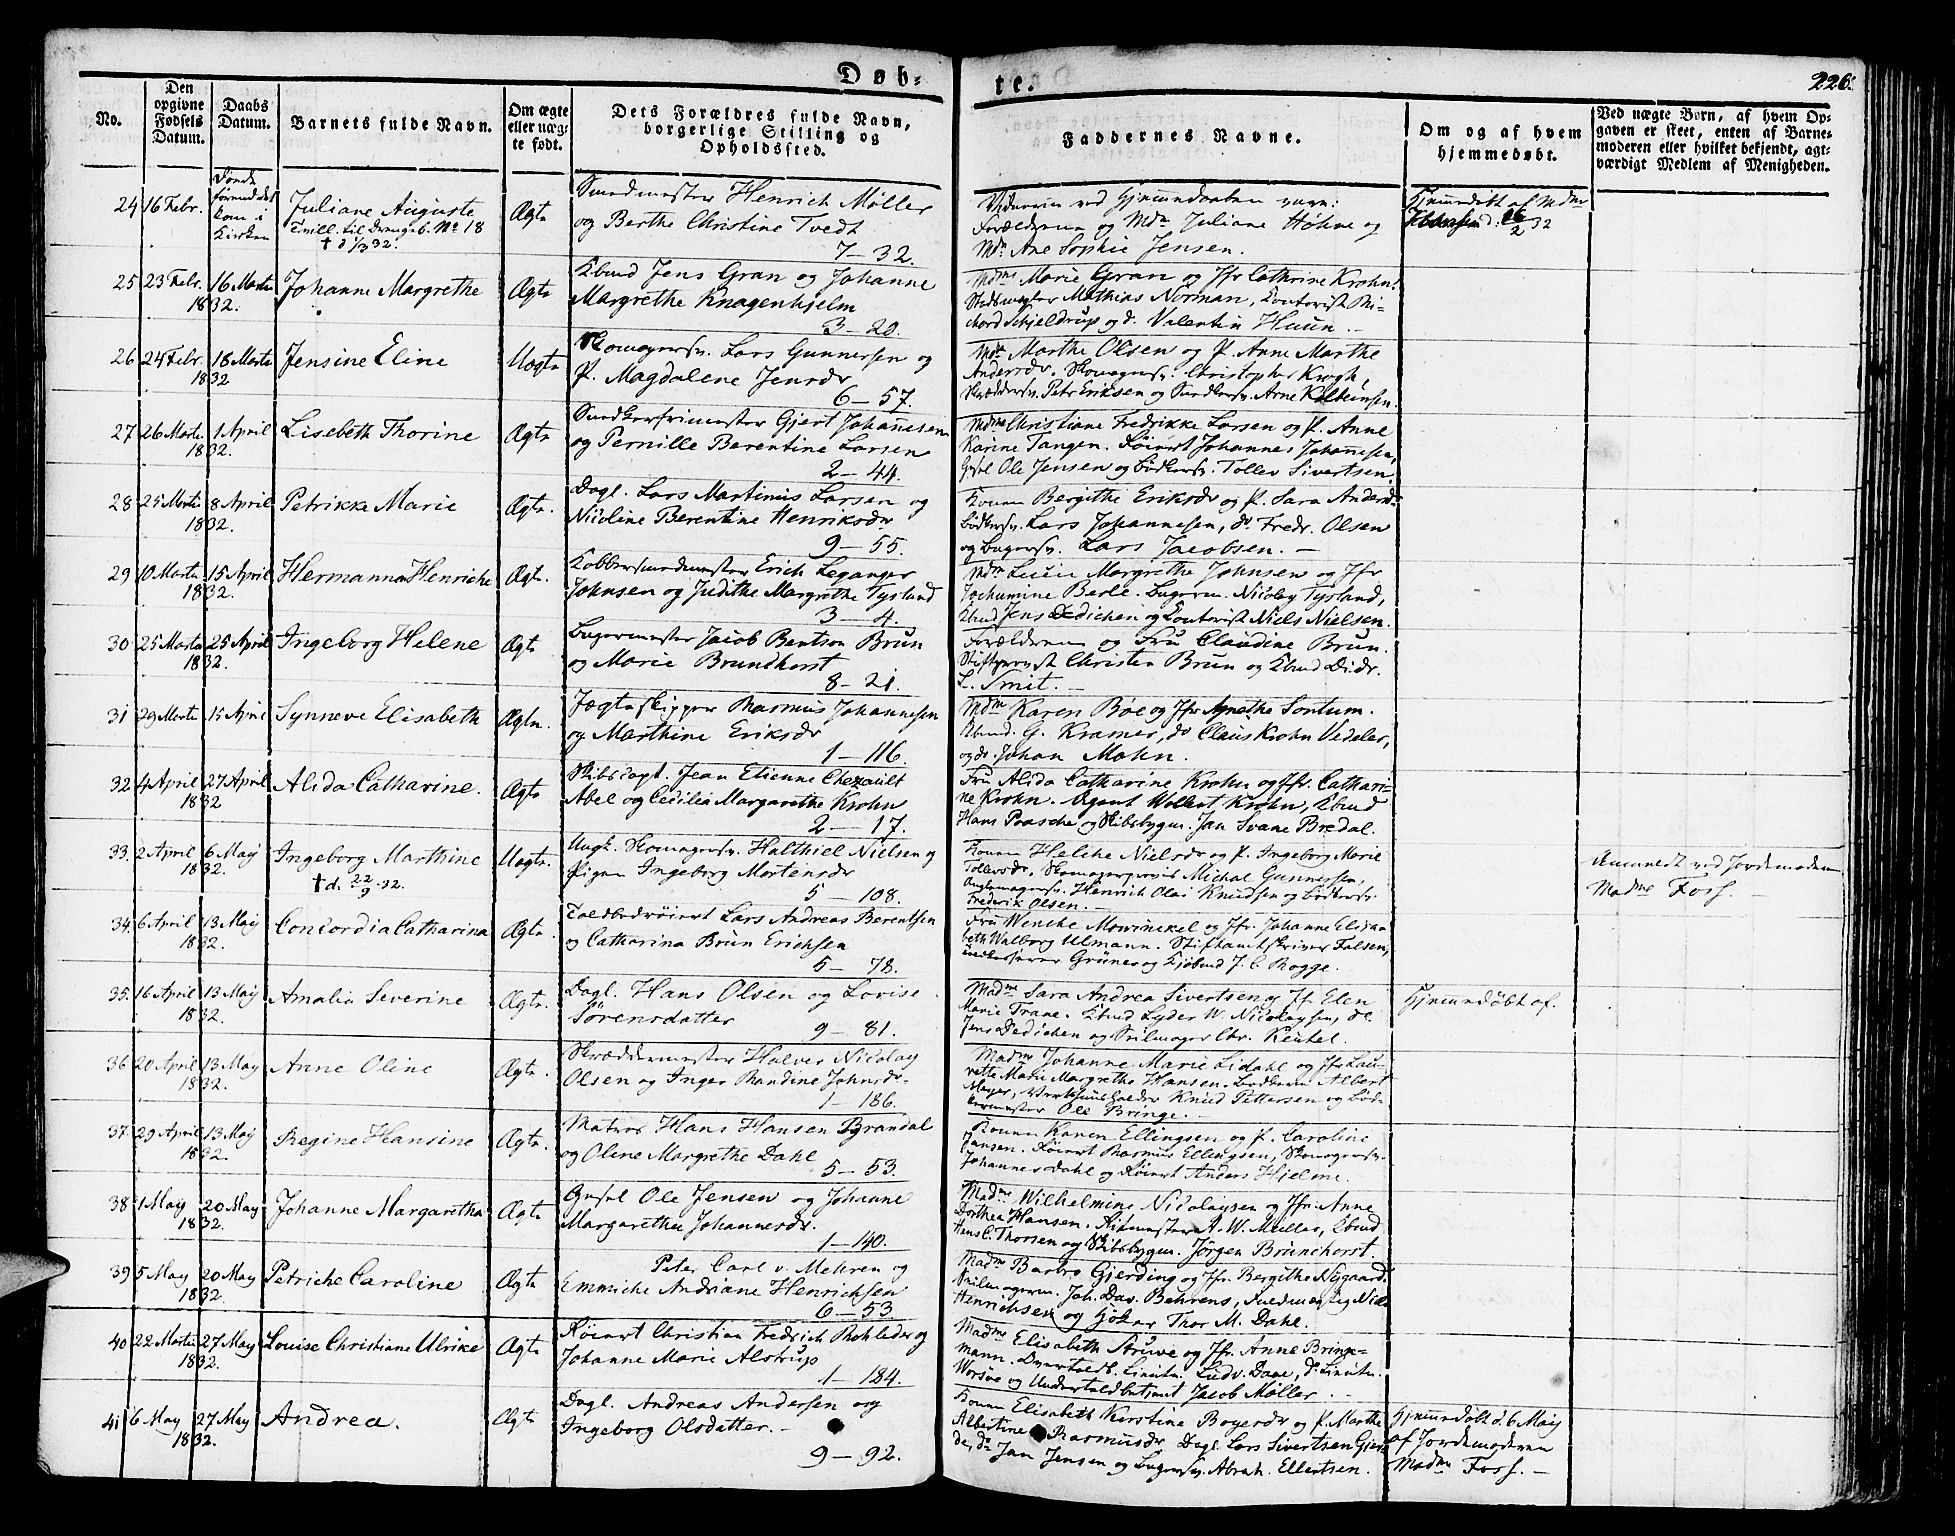 Døb-
te.
226.
No.
Den opgivne Fødsels Datum.
Daabs Datum.
Barnets fulde Navn.
Om ægte eller uægte født.
Dets Forældres fulde Navn, borgerlige Stilling og Opholdssted.
Faddernes Navne.
Om og af hvem hjemmedøbt.
Ved uægte Børn, af hvem Opgaven er skeet, enten af Barnemoderen eller hvilket bekjendt, agtværdigt Medlem af Menigheden.
24 16 Febr.
kom i Kirken
Juliane Auguste
No 18
Ægte
Henrich Møller
og Berthe Christine Tvedt
7-32.
Forældrene og Mdm Juliane Höhne og
Mdm Ane Sophie Jensen.
Hjemmedøbt af Mdme
25 23 Febr. 16 Marts 1832.
Johanne Margrethe
Ægte
Kbmd Jens Gran og Johanne
Margrethe Knagenhjelm
3-20.
Mdme Marie Gran og Jfr Cathrine Krohn.
Mathias Norman, Contorist Ri-
chard Schjeldrup og d. Valentin Huun.
26 24 Febr. 18 Marts 1832
Jensine Eline
Uægte
Skomagersv. Lars Gunnersen og
P. Magdalene Jensdr
6-57.
Mdm Marthe Olsen og P. Anne Marthe
Andersdr. Skomagersv. Christopher Krogh,
Skræddersv. Petr Eriksen og Arne
27 26 Marts 1 April 1832.
Lisebeth Thorine
Ægte
Gjert Johannesen
og Pernille Berentine Larsen
2-44.
Mdme Christiane Fredrikke Larsen og P. Anne
Karine Tangen. Johannes Johannesen,
Ole Jensen og Bødkersv. Tollev Sivertsen.
28 25 Marts 8 April 1832.
Petrikke Marie
Ægte.
Dagl. Lars Martinus Larsen og
Nicoline Berentine Henriksdr
9-55.
Konen Bergithe Eriksdr og P. Sara Andersdr
Bødkersv. Lars Johannesen, do Fredr. Olsen
og Bagersv. Lars Jacobsen.
29 10 Marts 15 April 1832.
Hermanna Henriche
Ægte.
Kobbersmedmester Erich Leganger
Johnsen og Judithe Margrethe Tysland
3-4.
Mdm Margrethe Johnsen og Jfr
Jochumine Berle. Bagerm. Nicolay Tysland,
Kbmd Jens Dedichen og Contorist Niels Nielsen.
30 25 Marts 25 April 1832.
Ingeborg Helene
Ægte
Bagermester Jacob Bentson Brun
og Marie Brundhorst
8-21.
Forældrene og Fru Claudine Brun.
Christen Brun og Kbmd Didr.
L. Smit.
31 29 Marts 15 April
Synneve Elisabeth
Ægte.
Jægteskipper Rasmus Johannesen
og Marthine Eriksdr
1-116.
Mdm Karen Böe og Jfr Agnethe Sontum.
Kbmd. G. Kramer, do Claus Krohn Vedeler,
og do Johan Mohn.
32 4 April 27 April 1832
Alida Catharine.
Ægte
Skibscapt. Jean Etienne Chezault
Abel og Cecilia Margarethe Krohn
2-17.
Fru Alida Catharine Krohn og Jfr. Cathari-
ne Krohn. Agent Wollert Krohn, Kbmd
Hans Paasche og Skibsbygm. Jan Svane Bredal.
33. 2 April 6 May 1832.
Ingeborg Marthine
† d. 22/9 32.
Uægte.
Ungk. Skomagersv. Halthiel Nielsen og
Pigen Ingeborg Mortensdr
5-108.
Konen Helche Nielsdr og P. Ingeborg Marie
Tollevsdr. Michal Gunnersen,
Henrich Olai Knudsen og Bødkersv.
Frederik Olsen.
Anmeldt ved Jordemoderen
Madme Foss.
34. 6 April 13 May 1832.
Concordia Catharina
Ægte.
Lars Andreas Berentsen
og Catharina Brun Erichsen
5-78.
Fru Wenche Mowinckel og Jfr. Johanne Elisa-
beth Walborg Ulmann. Stiftamtskriver Falsen,
Grüner og Kjøbmd J. C. Rogge.
35. 16 April 13 May 1832.
Amalia Severine
Ægte.
Dagl. Hans Olsen og Lovise
Sörensdatter 9-81.
Madme Sara Andrea Sivertsen og Jf. Elen
Marie Trane. Kbmd Lyder W. Nicolaysen, do
Jens Dedichen og Seilmager Chr. Keutel.
Hjemmedöbt af.
36 20 April 13 May 1832.
Anne Oline
Ægte.
Skræddermester Halvor Nicolay
Olsen og Inger Randine Johnsdr.
1-186.
Madme Johanne Marie Lidahl og Jfr Lau-
rette Marie Margrethe Hansen. Albert
Meyer, Knud Pettersen og Bød-
kermester Ole Bringe.
37. 29 April 13 May 1832.
Regine Hansine
Ægte.
Matros Hans Hansen Brandal
og Oline Margrethe Dahl
5-53.
Konen Karen Ellingsen og P. Caroline
Jansen. Rasmus Ellingsen, Skomagersv.
Johannes Dahl og Anders Hjelme.
38 1 May 20 May 1832.
Johanne Margaretha
Ægte.
Ole Jensen og Johanne
Margarethe Johannesdr.
1-140.
Madme Wilhelmine Nicolaysen og Jfr. Anne
Dorthea Hansen. A. W. Müller, Kbmd
Hans C. Thorsen og Skibsbygm. Jörgen Brunchorst.
39 5 May 20 May 1832.
Petriche Caroline
Ægte
Peter Carl v. Mehren og
Emmiche Andriane Henrichsen
6-53
Madme Barbro Gjerding og Jfr. Bergithe Nygaard.
Seilmagerm. Joh. Dav. Behrens, Fuldmægtig Niels
Henrichsen og Thor M. Dahl.
40 22 Marts 27 May 1832.
Louise Christiane Ulrike
Ægte
Christian Fredrich Rohleder og
Johanne Marie Alstrup
1-184.
Madme Elisabeth Struwe og Jfr. Anne Brink-
mann. Ludv. Daae, do Lieutn.
Worsöe og Jacob Møller.
41 6 May 27 May 1832.
Andrea.
Ægte
Dagl. Andreas Andersen og
Ingeborg Olsdatter.
9-92.
Konen Elisabeth Kirstine Boyesdr og P. Marthe
Albertine Rasmusdr. Dagl. Lars Sivertsen
do Jan Jensen og Bagersv. Abrah. Ellertsen.
Hjemmedøbt d. 6 May
af Jordemoderen
Madme Foss.